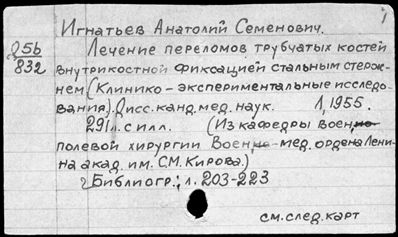 1
Игнатьев Анатолий Семенович.
Д5б
832
Лечение переломов трубчатых костей
внутрикостной фиксацией стальным стерж-
нем (Клинико-экспериментальные исследо-
вания). Дисс. канд. мед. наук. Л, 1955.
291л. с илл. (Из кафедры Военно-
полевой хирургии Военно-мед. ордена Лени-
на акад. им. С.М. Кирова.)
Библиогр.; л. 203-223
см. след. карт